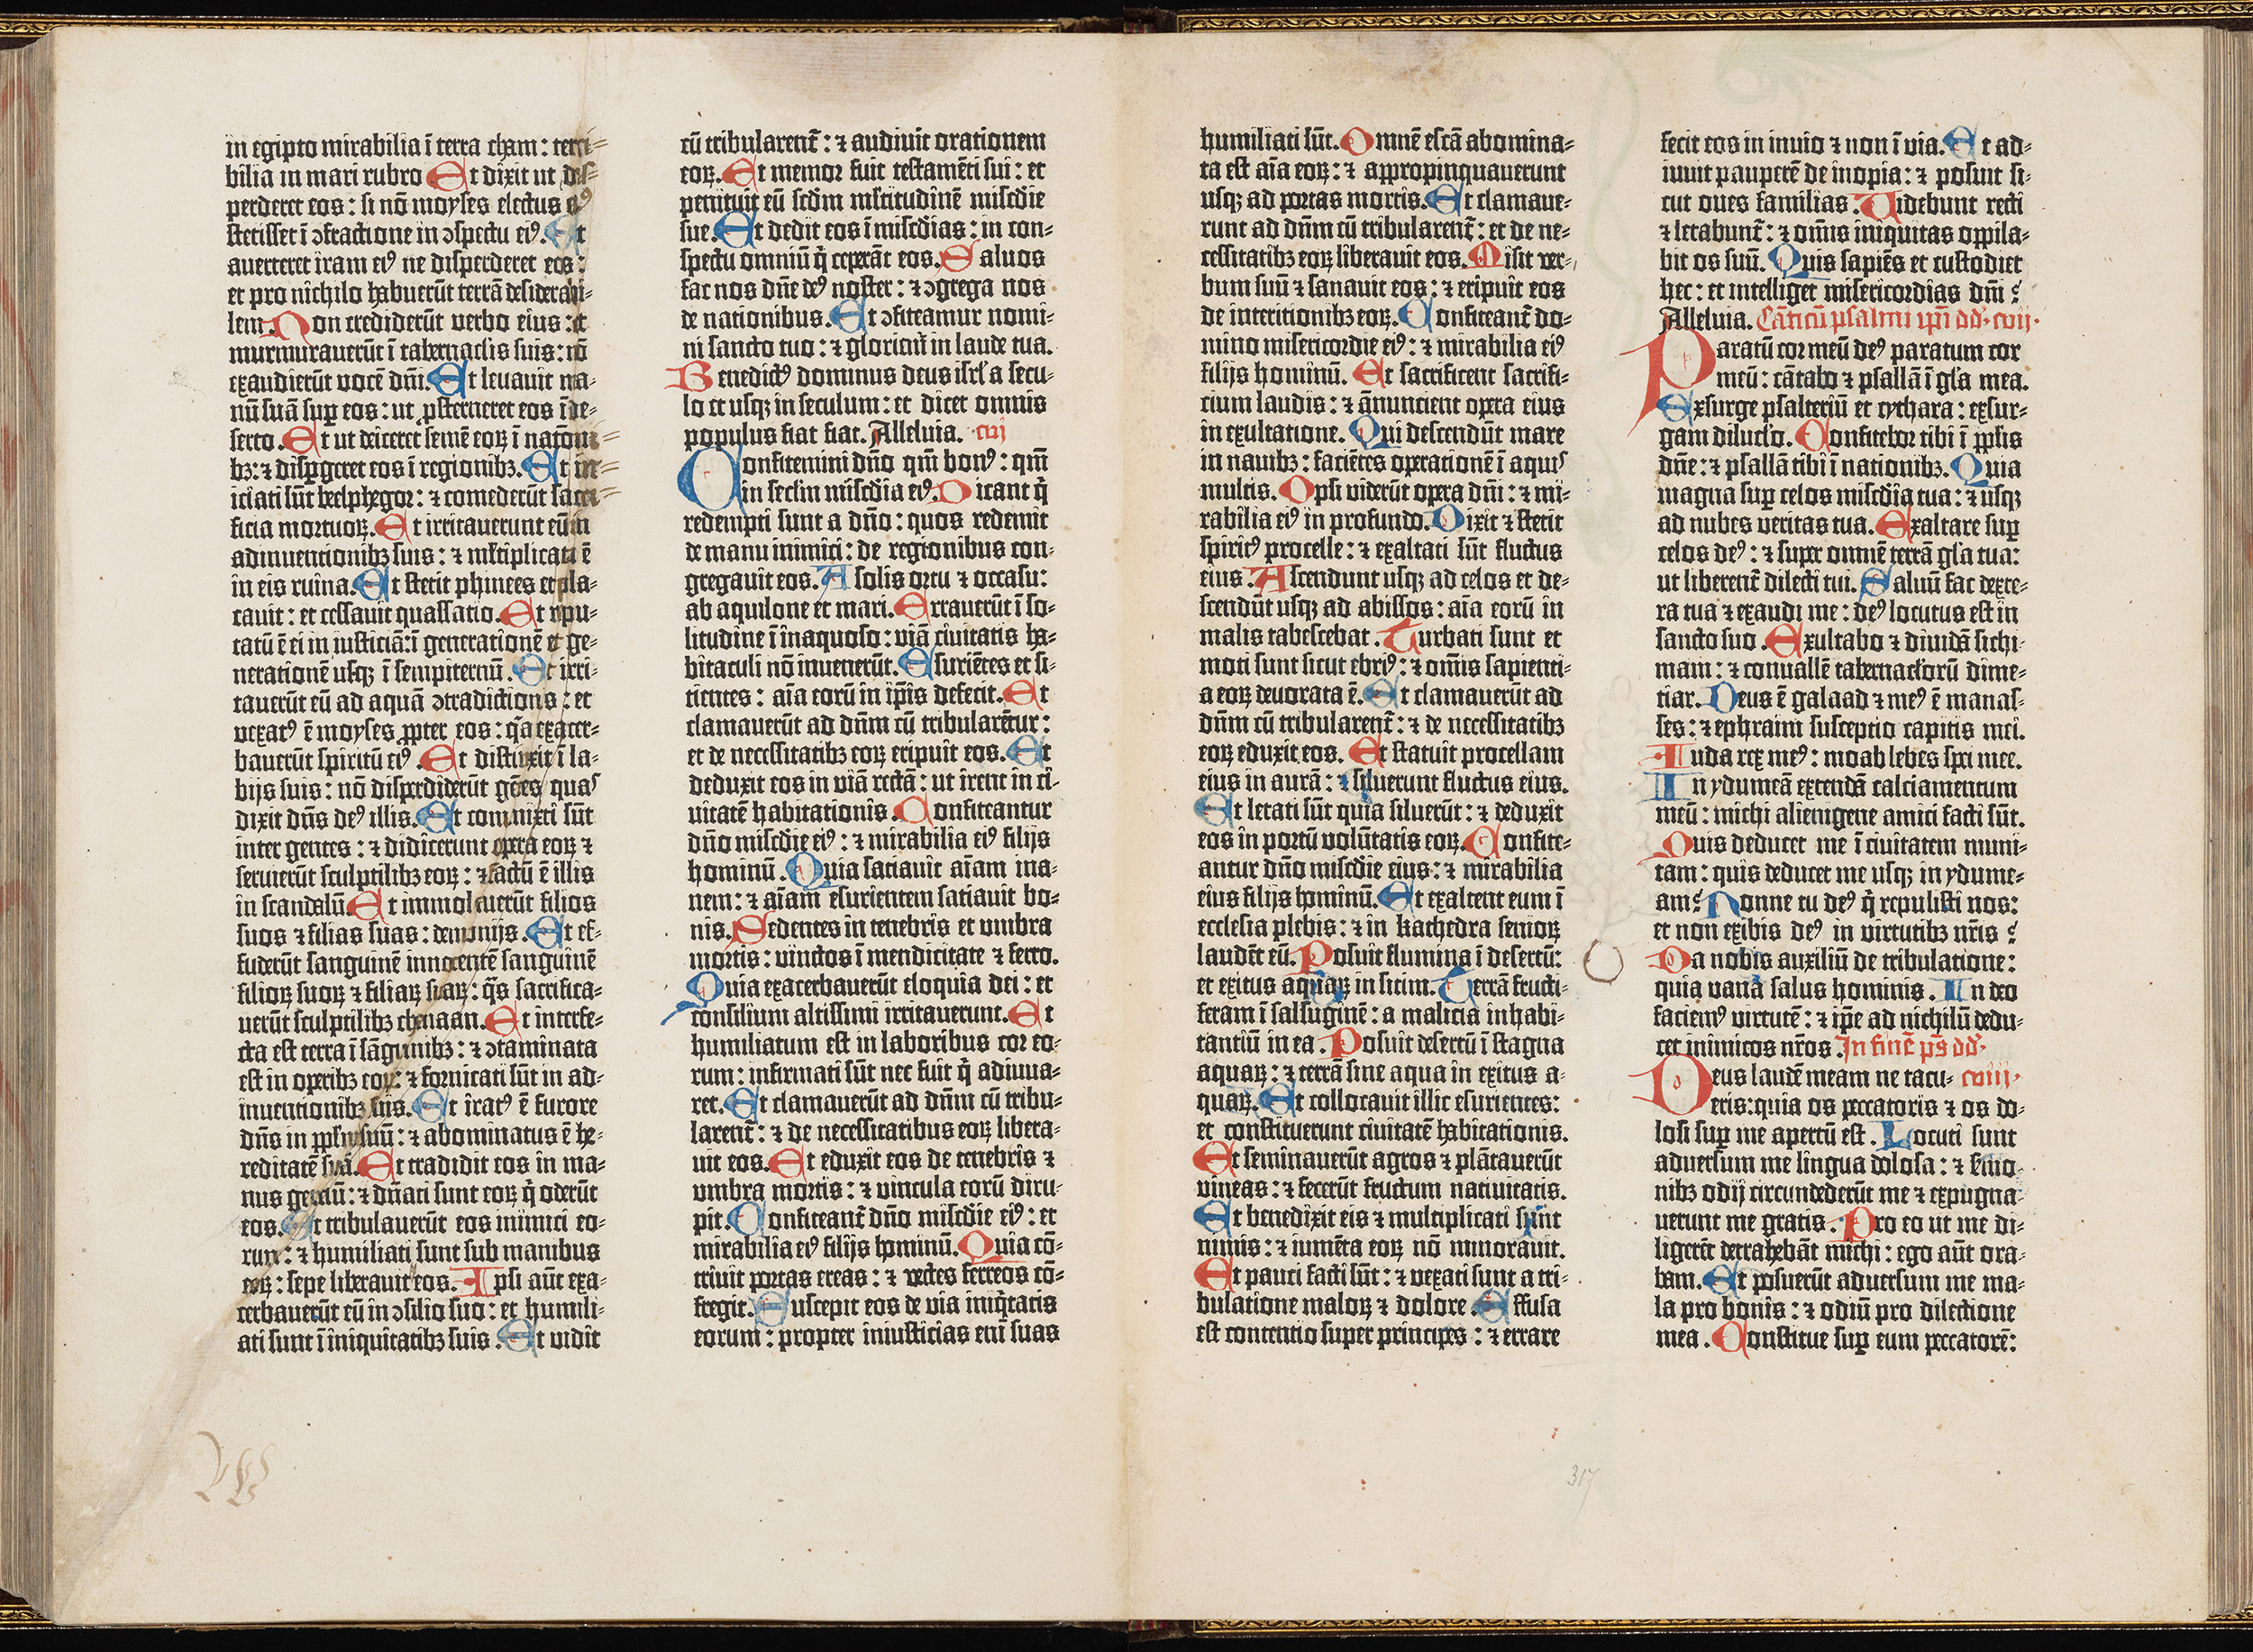 in egipto mirabilia ī terra cham : terri-
bilia in mari rubro Et dixit ut dis-
perderet eos : si nō moyses electus eiꝰ
stetisset ī ↄfractione in ↄspectu eiꝰ. Et
averteret irā eiꝰ ne disperderet eos :
et pro nichilo habuerūt terrā desiderabi-
lem. Non crediderūt verbo eius : et
murmuraverūt ī tabernaclis suis : nō
exaudierūt vocē dn̄i. Et levavit ma-
nū suā suꝑ eos : ut ꝓsterneret eos ī de-
serto. Et ut deiceret semē eoꝝ ī natōni-
bꝫ : ⁊ disꝑgeret eos ī regionibꝫ. Et in-
iciati sūt beelphegor : ⁊ comederūt sacri-
ficia mortuoꝝ. Et irritaverunt eū in
adinventionibꝫ suis : ⁊ ml̄tiplicata ē
in eis ruina. Et stetit phinees et pla-
cavit : et cessavit quassatio. Et repu-
tatū ē ei in iusticiā : ī generationē et ge-
nerationē usqꝫ ī sempiternū. Et irri-
taverūt eū ad aquā ↄtradictiōns : et
vexatꝰ ē moyses ꝓpter eos : q̄a exacer-
baverūt spiritū eiꝰ. Et distinxit ī la-
bijs suis : nō disperdiderūt gētes quas
dixit dn̄s deꝰ illis. Et commixti sūt
inter gentes : ⁊ didicerunt opera eoꝝ ⁊
servierūt sculptilibꝫ eoꝝ : ⁊ factū ē illis
in scandalū. Et immolaverūt filios
suos ⁊ filias suas : demonijs. Et ef-
fuderūt sanguinē innocentē sanguinē
filioꝝ suoꝝ ⁊ filiaꝝ suaꝝ : q̄s sacrifica-
verūt sculptilibꝫ chanaan. Et interfe-
cta est terra ī sāgunibꝫ : ⁊ ↄtaminata
est in operibꝫ eoꝝ : ⁊ fornicati sūt in ad-
inventionibꝫ suis. Et iratꝰ ē furore
dn̄s in ppl̄m suū : ⁊ abominatus ē he-
reditatē suā. Et tradidit eos in ma-
nus gentiū : ⁊ dn̄ati sunt eoꝝ q̄ oderūt
eos. Et tribulaverūt eos inimici eo-
rum : ⁊ humiliati sunt sub manibus
eoꝝ : sepe liberavit eos. Ipsi aūt exa-
cerbaverūt eū in ↄsilio suo : et humili-
ati sunt ī iniquitatibꝫ suis. Et vidit
cū tribularent̄ : ⁊ audivit orationem
eoꝝ. Et memor fuit testamēti sui : et
penituit eū scd̄m ml̄titudinē misc̄die
sue. Et dedit eos ī misc̄dias : in con-
spectu omniū q̄ ceperāt eos. Salvos
fac nos dn̄e deꝰ noster : ⁊ ↄgrega nos
de nationibus. Et ↄfiteamur nomi-
ni sancto tuo : ⁊ gloriem̄ in laude tua.
Benedictꝰ dominus deus isrl̄ a secu-
lo et usqꝫ in seculum : et dicet omnis
populus fiat fiat. Alleluia. cvi
Confitemini dn̄o qm̄ bonꝰ : qm̄
in secl̄m misc̄dia eiꝰ. Dicant q̄
redempti sunt a dn̄o : quos redemit
de manu inimici : de regionibus con-
gregavit eos. A solis ortu ⁊ occasu :
ab aquilone et mari. Erraverūt ī so-
litudine ī inaquoso : viā civitatis ha-
bitaculi nō invenerūt. Esuriētes et si-
tientes : aīa eorū in ip̄is defecit. Et
clamaverūt ad dn̄m cū tribularētur :
et de necessitatibꝫ eoꝝ eripuit eos. Et
deduxit eos in viā rectā : ut irent in ci-
vitatē habitationis. Confiteantur
dn̄o misc̄die eiꝰ : ⁊ mirabilia eiꝰ filijs
hominū. Quia satiavit aīam ina-
nem : ⁊ aīam esurientem satiavit bo-
nis. Sedentes in tenebris et umbra
mortis : vinctos ī mendicitate ⁊ ferro.
Quia exacerbaverūt eloquia dei : et
consilium altissimi irritaverunt. Et
humiliatum est in laboribus cor eo-
rum : infirmati sūt nec fuit q̄ adiuva-
ret. Et clamaverūt ad dn̄m cū tribu-
larent̄ : ⁊ de necessitatibus eoꝝ libera-
vit eos. Et eduxit eos de tenebris ⁊
umbra mortis : ⁊ vincula eorū diru-
pit. Confiteant̄ dn̄o misc̄die eiꝰ : et
mirabilia eiꝰ filijs hominū. Quia cō-
trivit portas ereas : ⁊ vectes ferreos cō-
fregit. Suscepit eos de via iniq̄tatis
eorum : propter iniusticias eni suas
humiliati sūt. Omnē escā abomina-
ta est aīa eoꝝ : ⁊ appropinquaverunt
usqꝫ ad portas mortis. Et clamave-
runt ad dn̄m cū tribularent̄ : et de ne-
cessitatibꝫ eoꝝ liberavit eos. Misit ver-
bum suū ⁊ sanavit eos : ⁊ eripuit eos
de interitionibꝫ eoꝝ. Confiteant̄ do-
mino misericordie eiꝰ : ⁊ mirabilia eiꝰ
filijs hominū. Et sacrificent sacrifi-
cium laudis : ⁊ ānuncient opera eius
in exultatione. Qui descendūt mare
in navibꝫ : faciētes operationē ī aquis
multis. Ipsi viderūt opera dn̄i : ⁊ mi-
rabilia eiꝰ in profundo. Dixit ⁊ stetit
spiritꝰ procelle : ⁊ exaltati sūt fluctus
eius. Ascendunt usqꝫ ad celos et de-
scendūt usqꝫ ad abissos : aīa eorū in
malis tabescebat. Turbati sunt et
moti sunt sicut ebriꝰ : ⁊ om̄is sapienti-
a eoꝝ devorata ē. Et clamaverūt ad
dn̄m cū tribularent̄ : ⁊ de necessitatibꝫ
eoꝝ eduxit eos. Et statuit procellam
eius in aurā : ⁊ siluerunt fluctus eius.
Et letati sūt quia siluerūt : ⁊ deduxit
eos in portū volūtatis eoꝝ. Confite-
antur dn̄o misc̄die eius : ⁊ mirabilia
eius filijs hominū. Et exaltent eum ī
ecclesia plebis : ⁊ in kathedra senioꝝ
laudēt eū. Posuit flumina ī desertū :
et exitus aquaꝝ in sitim. Terrā fructi-
feram ī salsuginē : a malicia inhabi-
tantiū in ea. Posuit desertū ī stagna
aquaꝝ : ⁊ terrā sine aqua in exitus a-
quaꝝ. Et collocavit illic esurientes :
et constituerunt civitatē habitationis.
Et seminaverūt agros ⁊ plātaverūt
vineas : ⁊ fecerūt fructum nativitatis.
Et benedixit eis ⁊ multiplicati sunt
nimis : ⁊ iumēta eoꝝ nō minoravit.
Et pauci facti sūt : ⁊ vexati sunt a tri-
bulatione maloꝝ ⁊ dolore. Effusa
est contentio super principes : ⁊ errare
fecit eos in invio ⁊ non ī via. Et ad-
iuvit pauperē de inopia : ⁊ posuit si-
cut oves familias. Videbunt recti
⁊ letabunt̄ : ⁊ om̄is iniquitas oppila-
bit os suū. Quis sapiēs et custodiet
hec : et intelliget misericordias dn̄i ?
Alleluia. Cāticū psalmi ip̄i dd̄. cvii.
Paratū cor meū deꝰ paratum cor
meū : cātabo ⁊ psallā ī gl̄a mea.
Exsurge psalteriū et cythara : exsur-
gam dilucl̄o. Confitebor tibi ī ppl̄is
dn̄e : ⁊ psallā tibi ī nationibꝫ. Quia
magna suꝑ celos misc̄dia tua : ⁊ usqꝫ
ad nubes veritas tua. Exaltare suꝑ
celos deꝰ : ⁊ super omnē terrā gl̄a tua :
ut liberent̄ dilecti tui. Salvū fac dexte-
ra tua ⁊ exaudi me : deꝰ locutus est in
sancto suo. Exultabo ⁊ dividā sichi-
mam : ⁊ convallē tabernaclorū dime-
tiar. Deus ē galaad ⁊ meꝰ ē manas-
ses : ⁊ ephraim susceptio capitis mei.
Iuda rex meꝰ : moab lebes spei mee.
In ydumeā extendā calciamentum
meū : michi alienigene amici facti sūt.
Quis deducet me ī civitatem muni-
tam : quis deducet me usqꝫ in ydume-
am ? Nonne tu deꝰ q̄ repulisti nos :
et non exibis deꝰ in virtutibꝫ nr̄is ?
Da nobis auxiliū de tribulatione :
quia vana salus hominis. In deo
faciemꝰ virtutē : ⁊ ip̄e ad nichilū dedu-
cet inimicos nr̄os. In finē p̄s dd̄.
Deus laudē meam ne tacu- cviii.
eris : quia os peccatoris ⁊ os do-
losi suꝑ me apertū est. Locuti sunt
adversum me lingua dolosa : ⁊ sermo-
nibꝫ odij circundederūt me ⁊ expugna-
verunt me gratis. Pro eo ut me di-
ligerēt detrahebāt michi : ego aūt ora-
bam. Et posuerūt adversum me ma-
la pro bonis : ⁊ odiū pro dilectione
mea. Constitue suꝑ eum peccatorē :
317